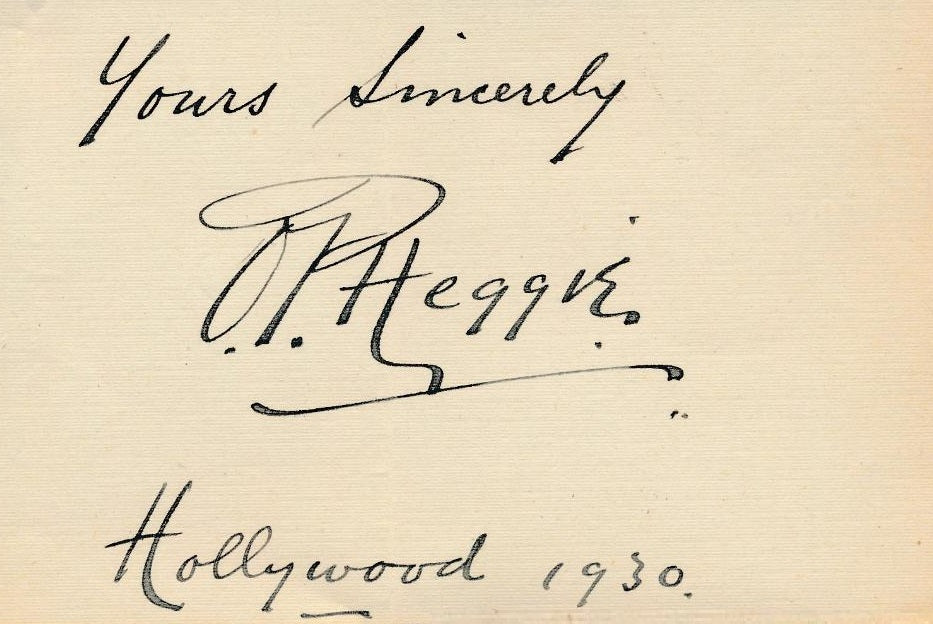 Yours Sincerely
O.P. Heggie.
Hollywood 1930.